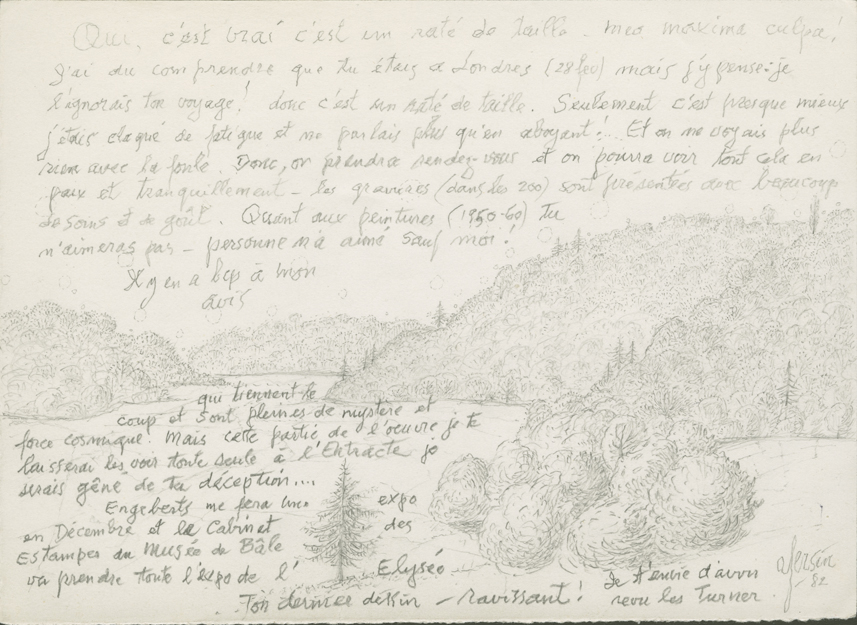 Oui, c'est vrai c'est un raté de taille. mea maxima culpa!
J'ai du comprendre que tu étais a Londres (28 fev) mais j'y pense: je
l'ignorais ton voyage! donc c'est un raté de taille. Seulement c'est presque mieux
j'étais claqué de fatigue et ne parlais plus qu'en aboyant! Et on ne voyais plus
rien avec la foule. Donc, on prendra rendez-vous et on pourra voir tout cela en
paix et tranquillement - les gravures (dans les 200) sont présentées avec beaucoup
de soins et de goût. Quant aux peintures (1950-60) tu
n'aimeras pas - personne n'a aimé sauf moi!
Il y en a bcp à mon
avis
qui tiennent le
coup et sont pleines de mystère et
force cosmique. Mais cette partie de l'oeuvre je te
laisserai les voir toute seule à l'Entracte je
serais gêné de ta déception....
Engeberts me fera une expo
en Décembre et le Cabinet des
Estampes du Musée de Bâle
va prendre toute l'expo de l'Elysée
Ton dernier dessin - ravissant! Je t'envie d'avoir
revu les Turner.
Yersin
82